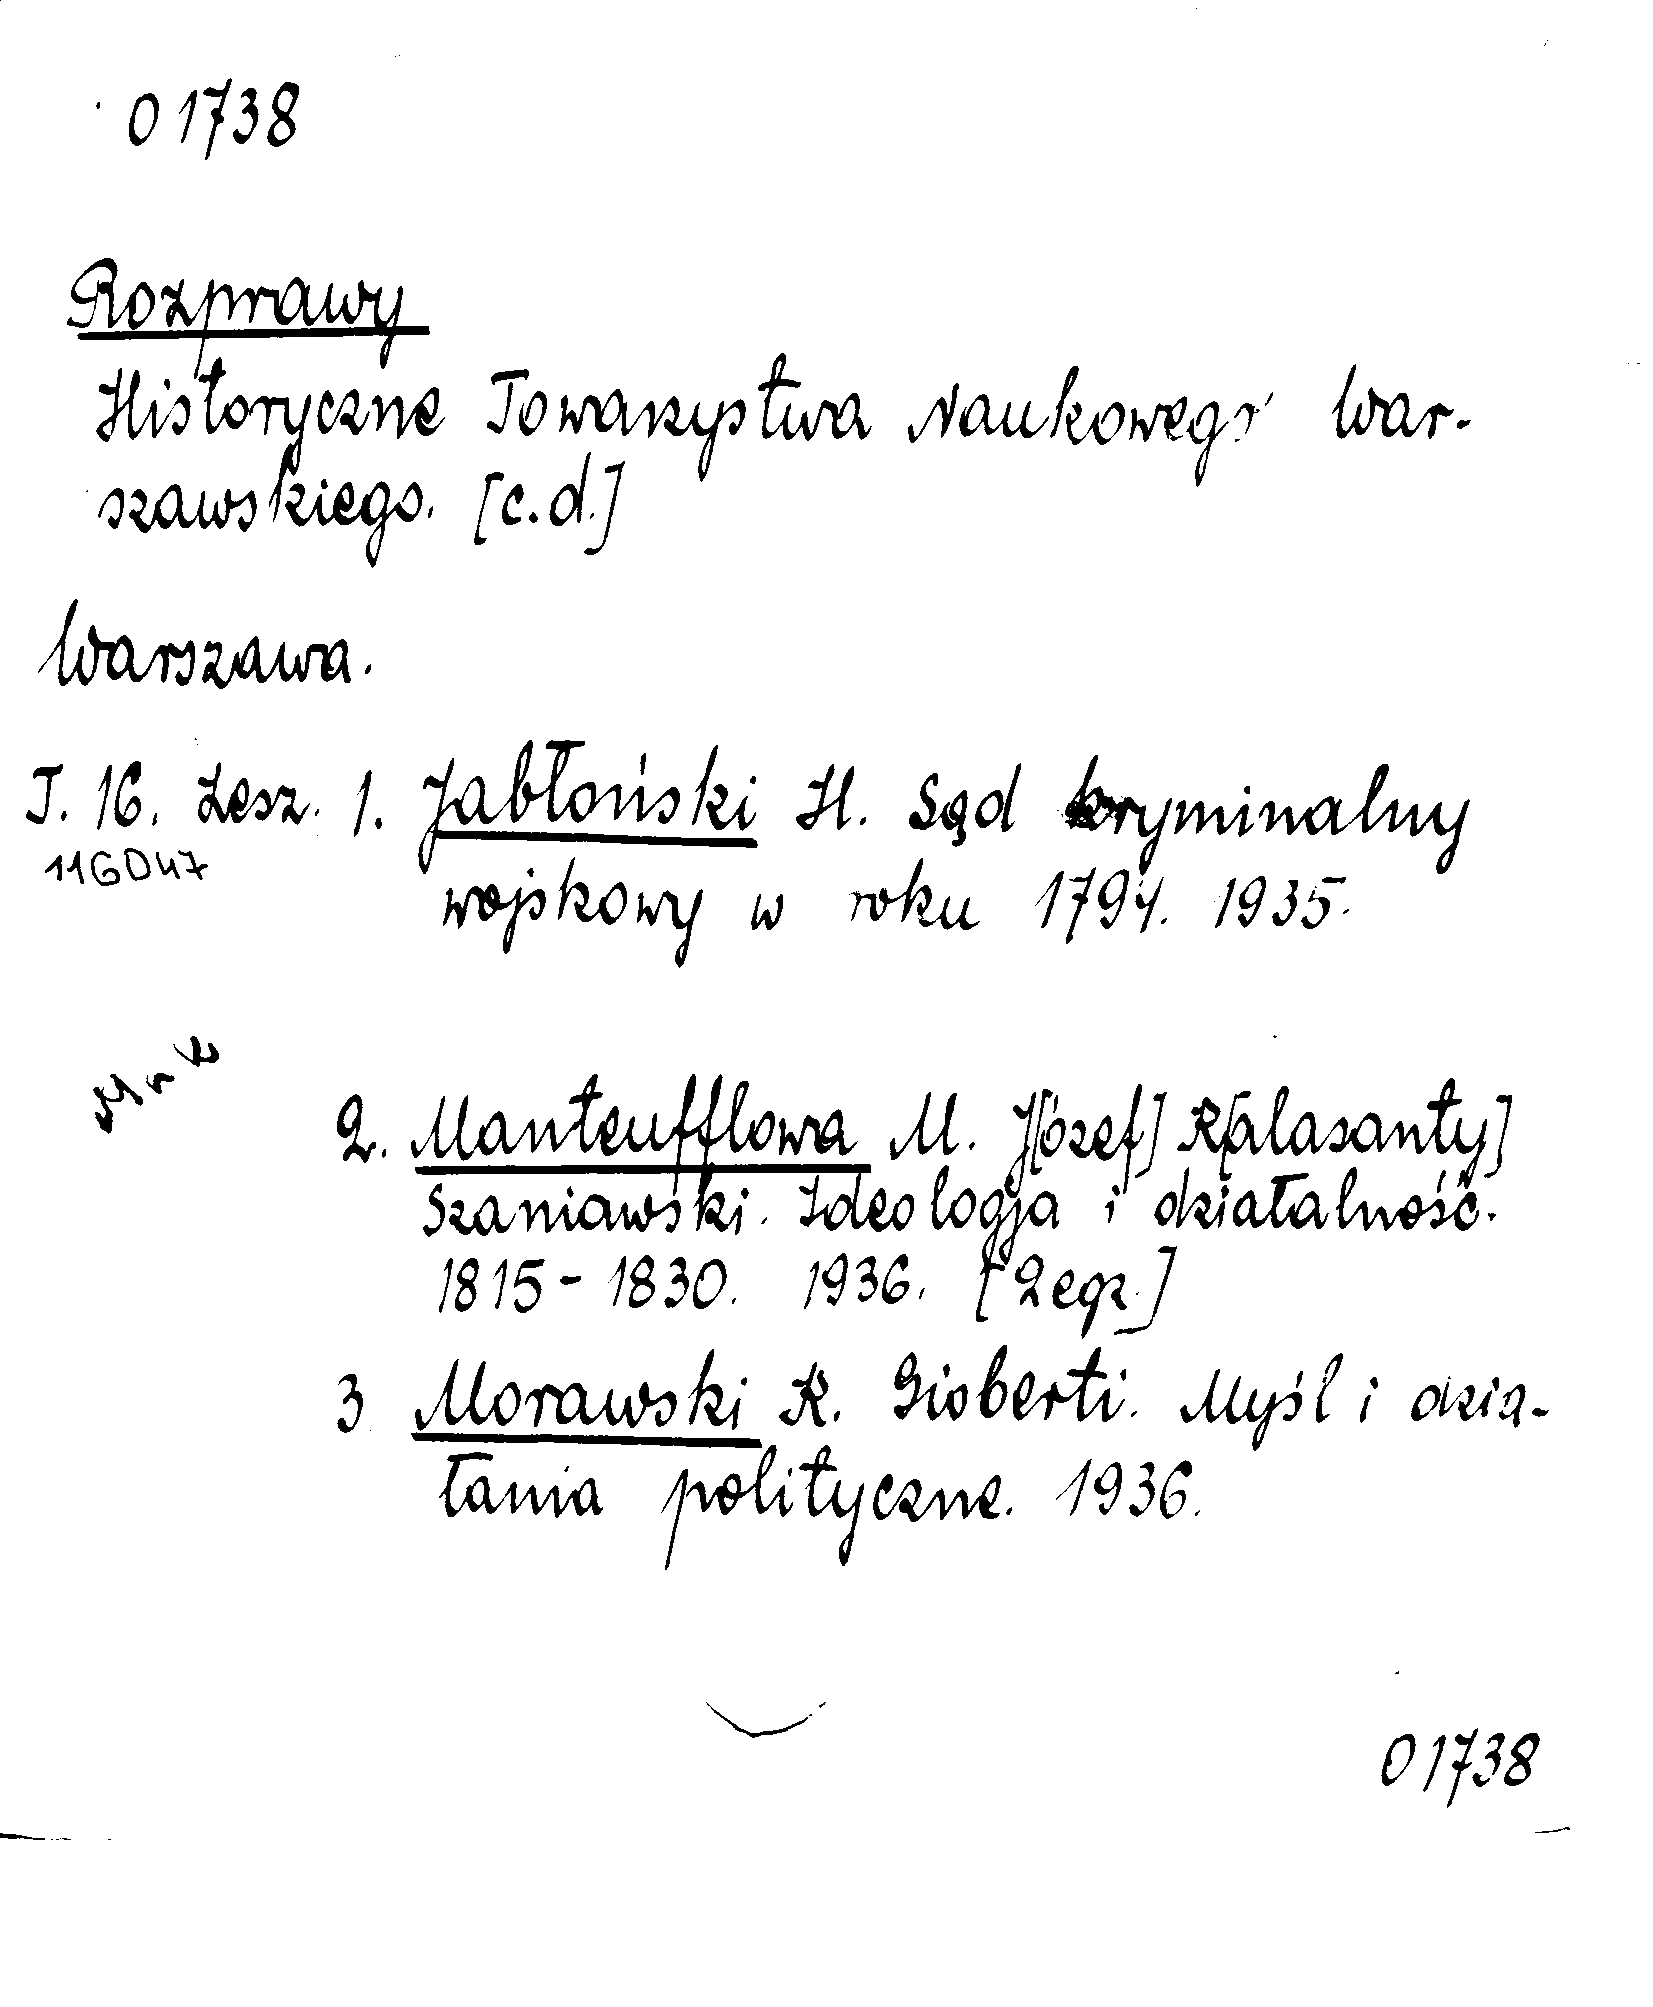 01738
Rozprawy
Historyczne Towarzystwa Naukowego War-
szawskiego. [c.d.]
Warszawa.
T. 16. Zesz. 1. Jabłoński H. Sąd kryminalny
116047
wojskowy w roku 1794. 1935.
2. Manteufflowa M. J[ózef] K[alasanty]
Szaniawski. Ideologja i działalność.
1815-1830. 1936. [2 egz.]
3 Morawski K. Gioberti. Myśl i dzia-
łania polityczne. 1936.
01738